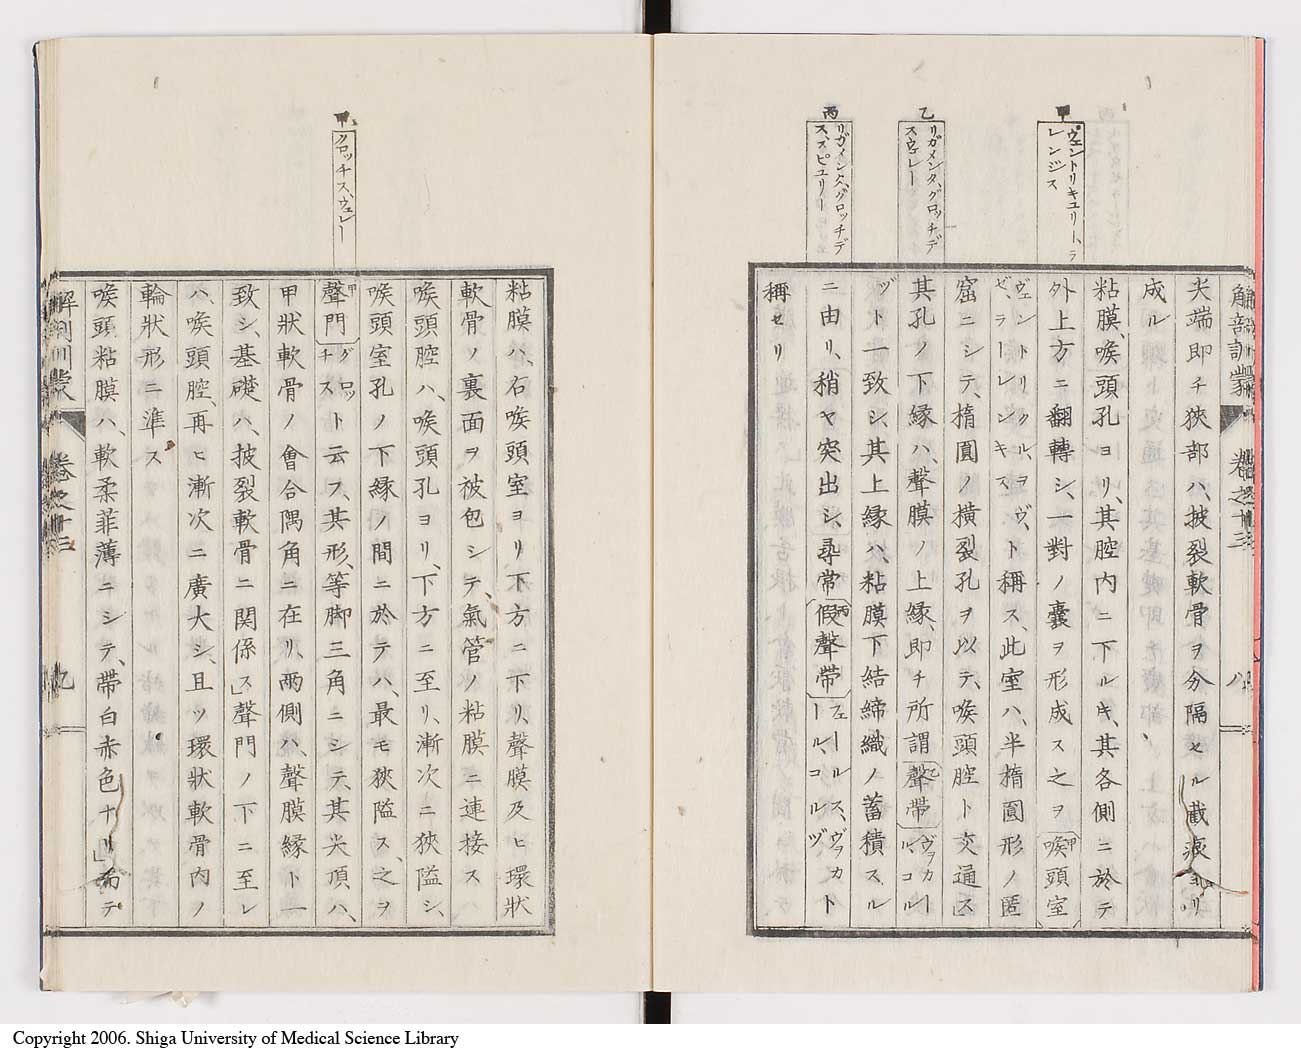 甲
ヴェントリキュリー、ラ
レンジス
乙
リガメンタ、グロッチデ
スヴェレー
丙
リガメンタ、グロッチデ
ス、スピュリー
解剖訓蒙 卷之十三 八
尖端即チ狹部ハ、披裂軟骨ヲ分隔セル截痕ヨリ
成ル
粘膜、喉頭孔ヨリ、其腔内ニ下ルキ、其各側ニ於テ
外上方ニ翻轉シ、一對ノ囊ヲ形成ス之ヲ甲喉頭室
ヴェントリクル、ヲヴ、
ゼ、ラーレンキス
ト稱ス、此室ハ、半橢圓形ノ匿
窟ニシテ、橢圓ノ橫裂孔ヲ以テ、喉頭腔ト交通ス」
其孔ノ下緣ハ、聲膜ノ上緣、即チ所謂乙聲帶
ヴァカー
ル、コル
ヅ
ト一致シ、其上緣ハ、粘膜下結締織ノ蓄積スル
ニ由リ、稍ヤ突出シ、尋常丙假聲帶
フェールス、ヴァカ
ール、コルヅ
ト
稱セリ
甲
グロッチス、ヴェレー
粘膜ハ、右喉頭室ヨリ、下方ニ下リ、聲膜及ヒ環狀
軟骨ノ裏面ヲ被包シテ、氣管ノ粘膜ニ連接ス
喉頭腔ハ、喉頭孔ヨリ、下方ニ至リ、漸次ニ狹隘シ、
喉頭室孔ノ下緣ノ間ニ於テハ、最モ狹隘ス、之ヲ
甲聲門
グロッ
チス
ト云フ、其形、等脚三角ニシテ、其尖頂ハ、
甲狀軟骨ノ會合隅角ニ在リ、兩側ハ、聲膜緣ト一
致シ、基礎ハ、披裂軟骨ニ関係ス」聲門ノ下ニ至レ
ハ、喉頭腔、再ヒ漸次ニ廣大シ、且ツ環狀軟骨内ノ
輪狀形ニ準ス
喉頭粘膜ハ、軟柔菲薄ニシテ、帶白赤色ナリ」而テ
解剖訓蒙 卷之十三 九
Copyright 2006. Shiga University of Medical Science Library